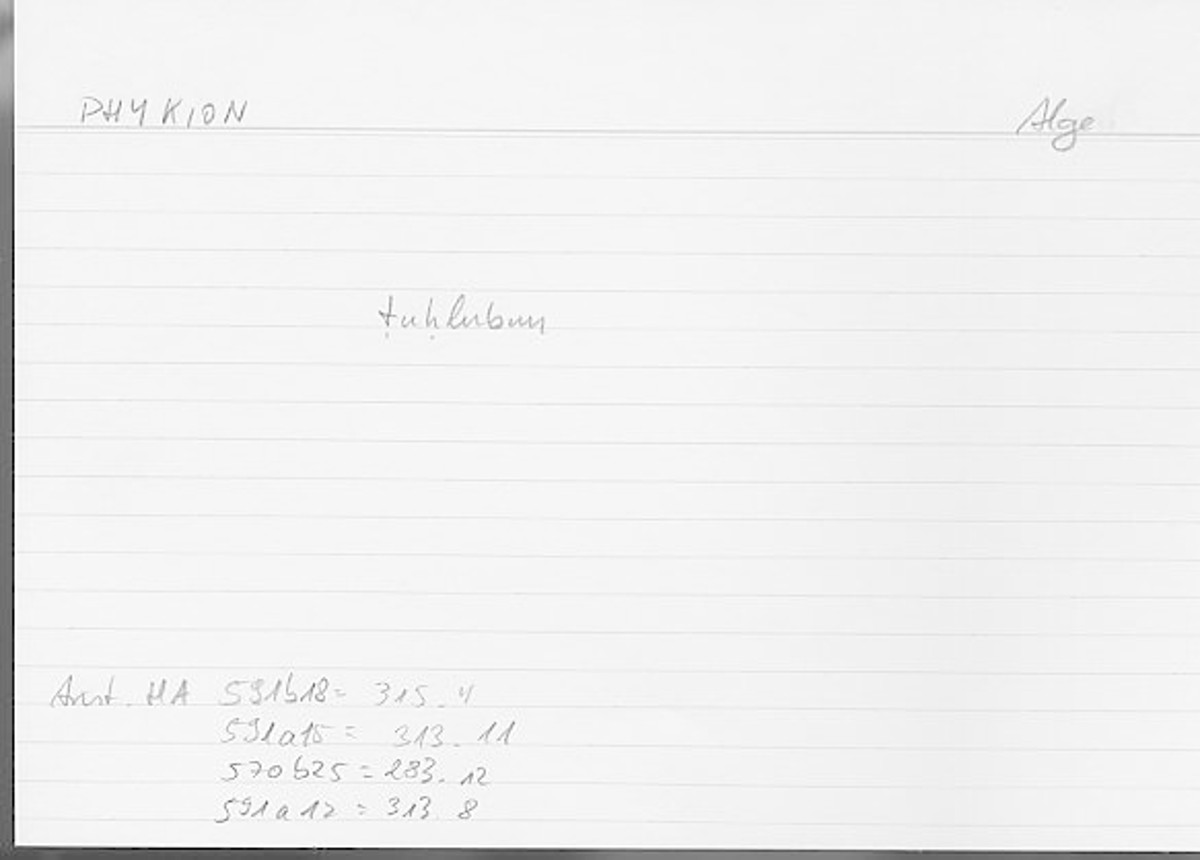 PHYKION Alge
ṭuḥlubun
Arist. HA 591b18 = 315.4
591a15 = 313.11
570b25 = 283.12
591a12 = 313.8